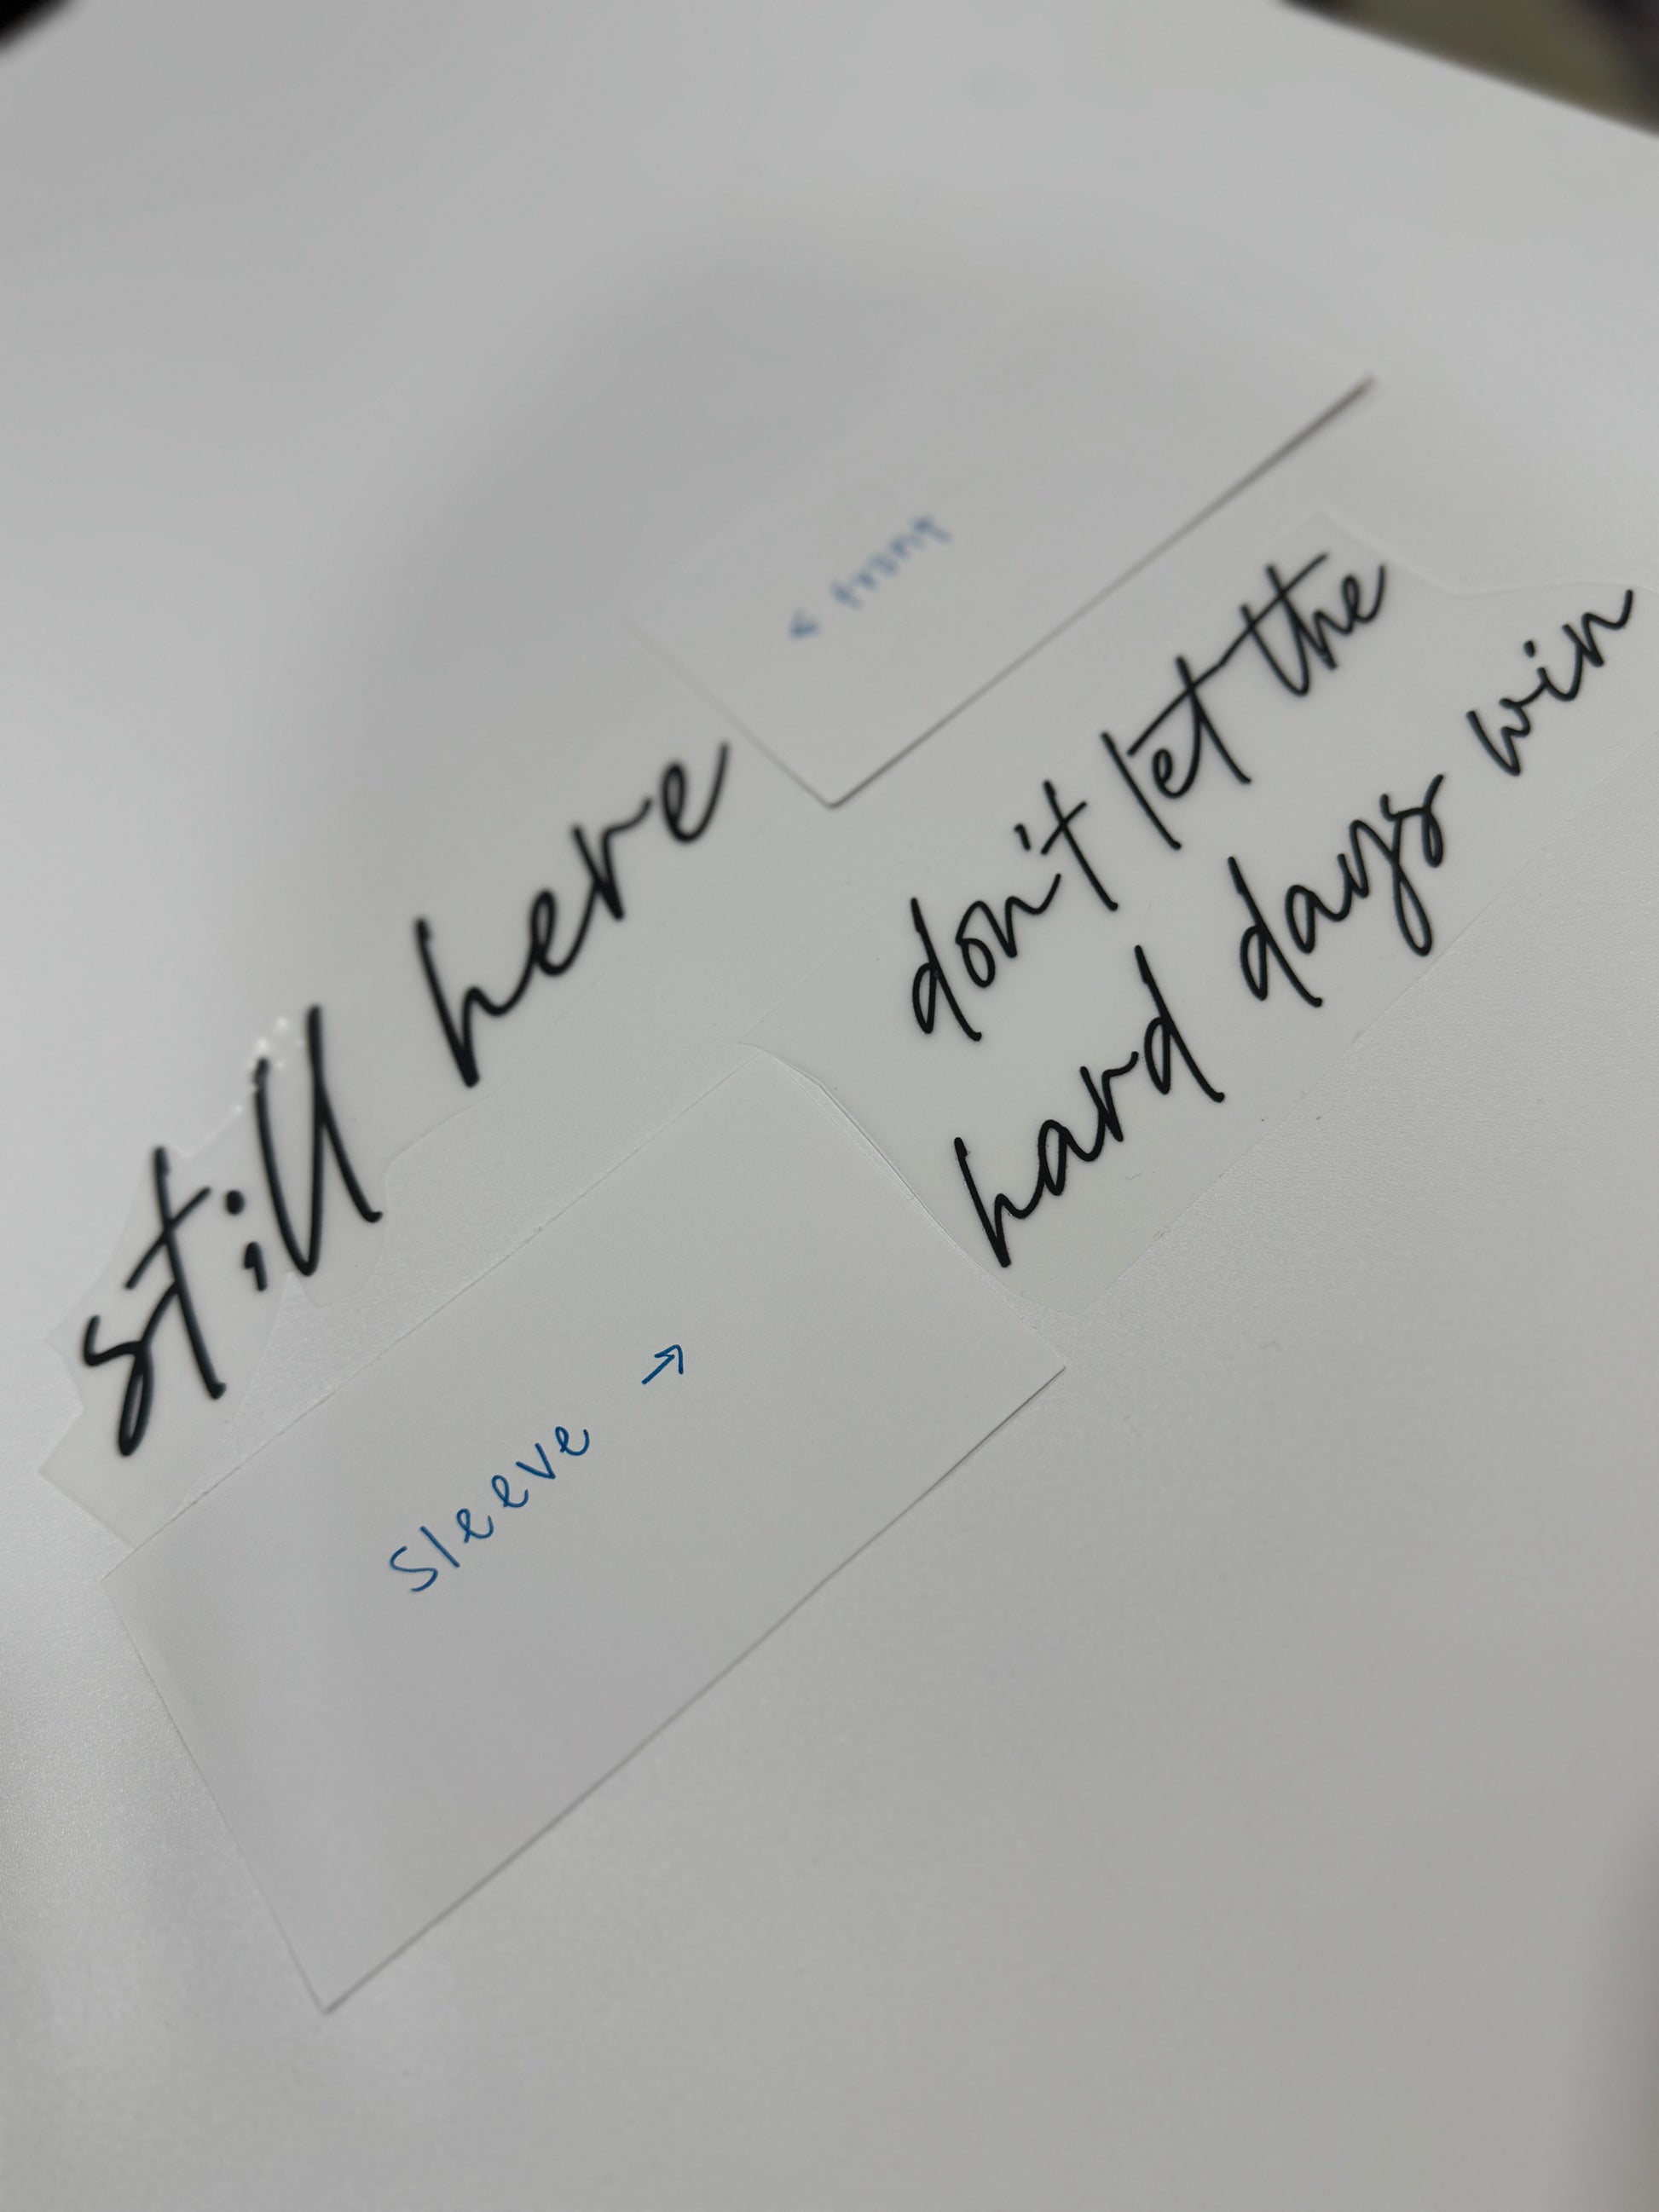 ← front
st;ll here
don't let the
hard days win
Sleeve →